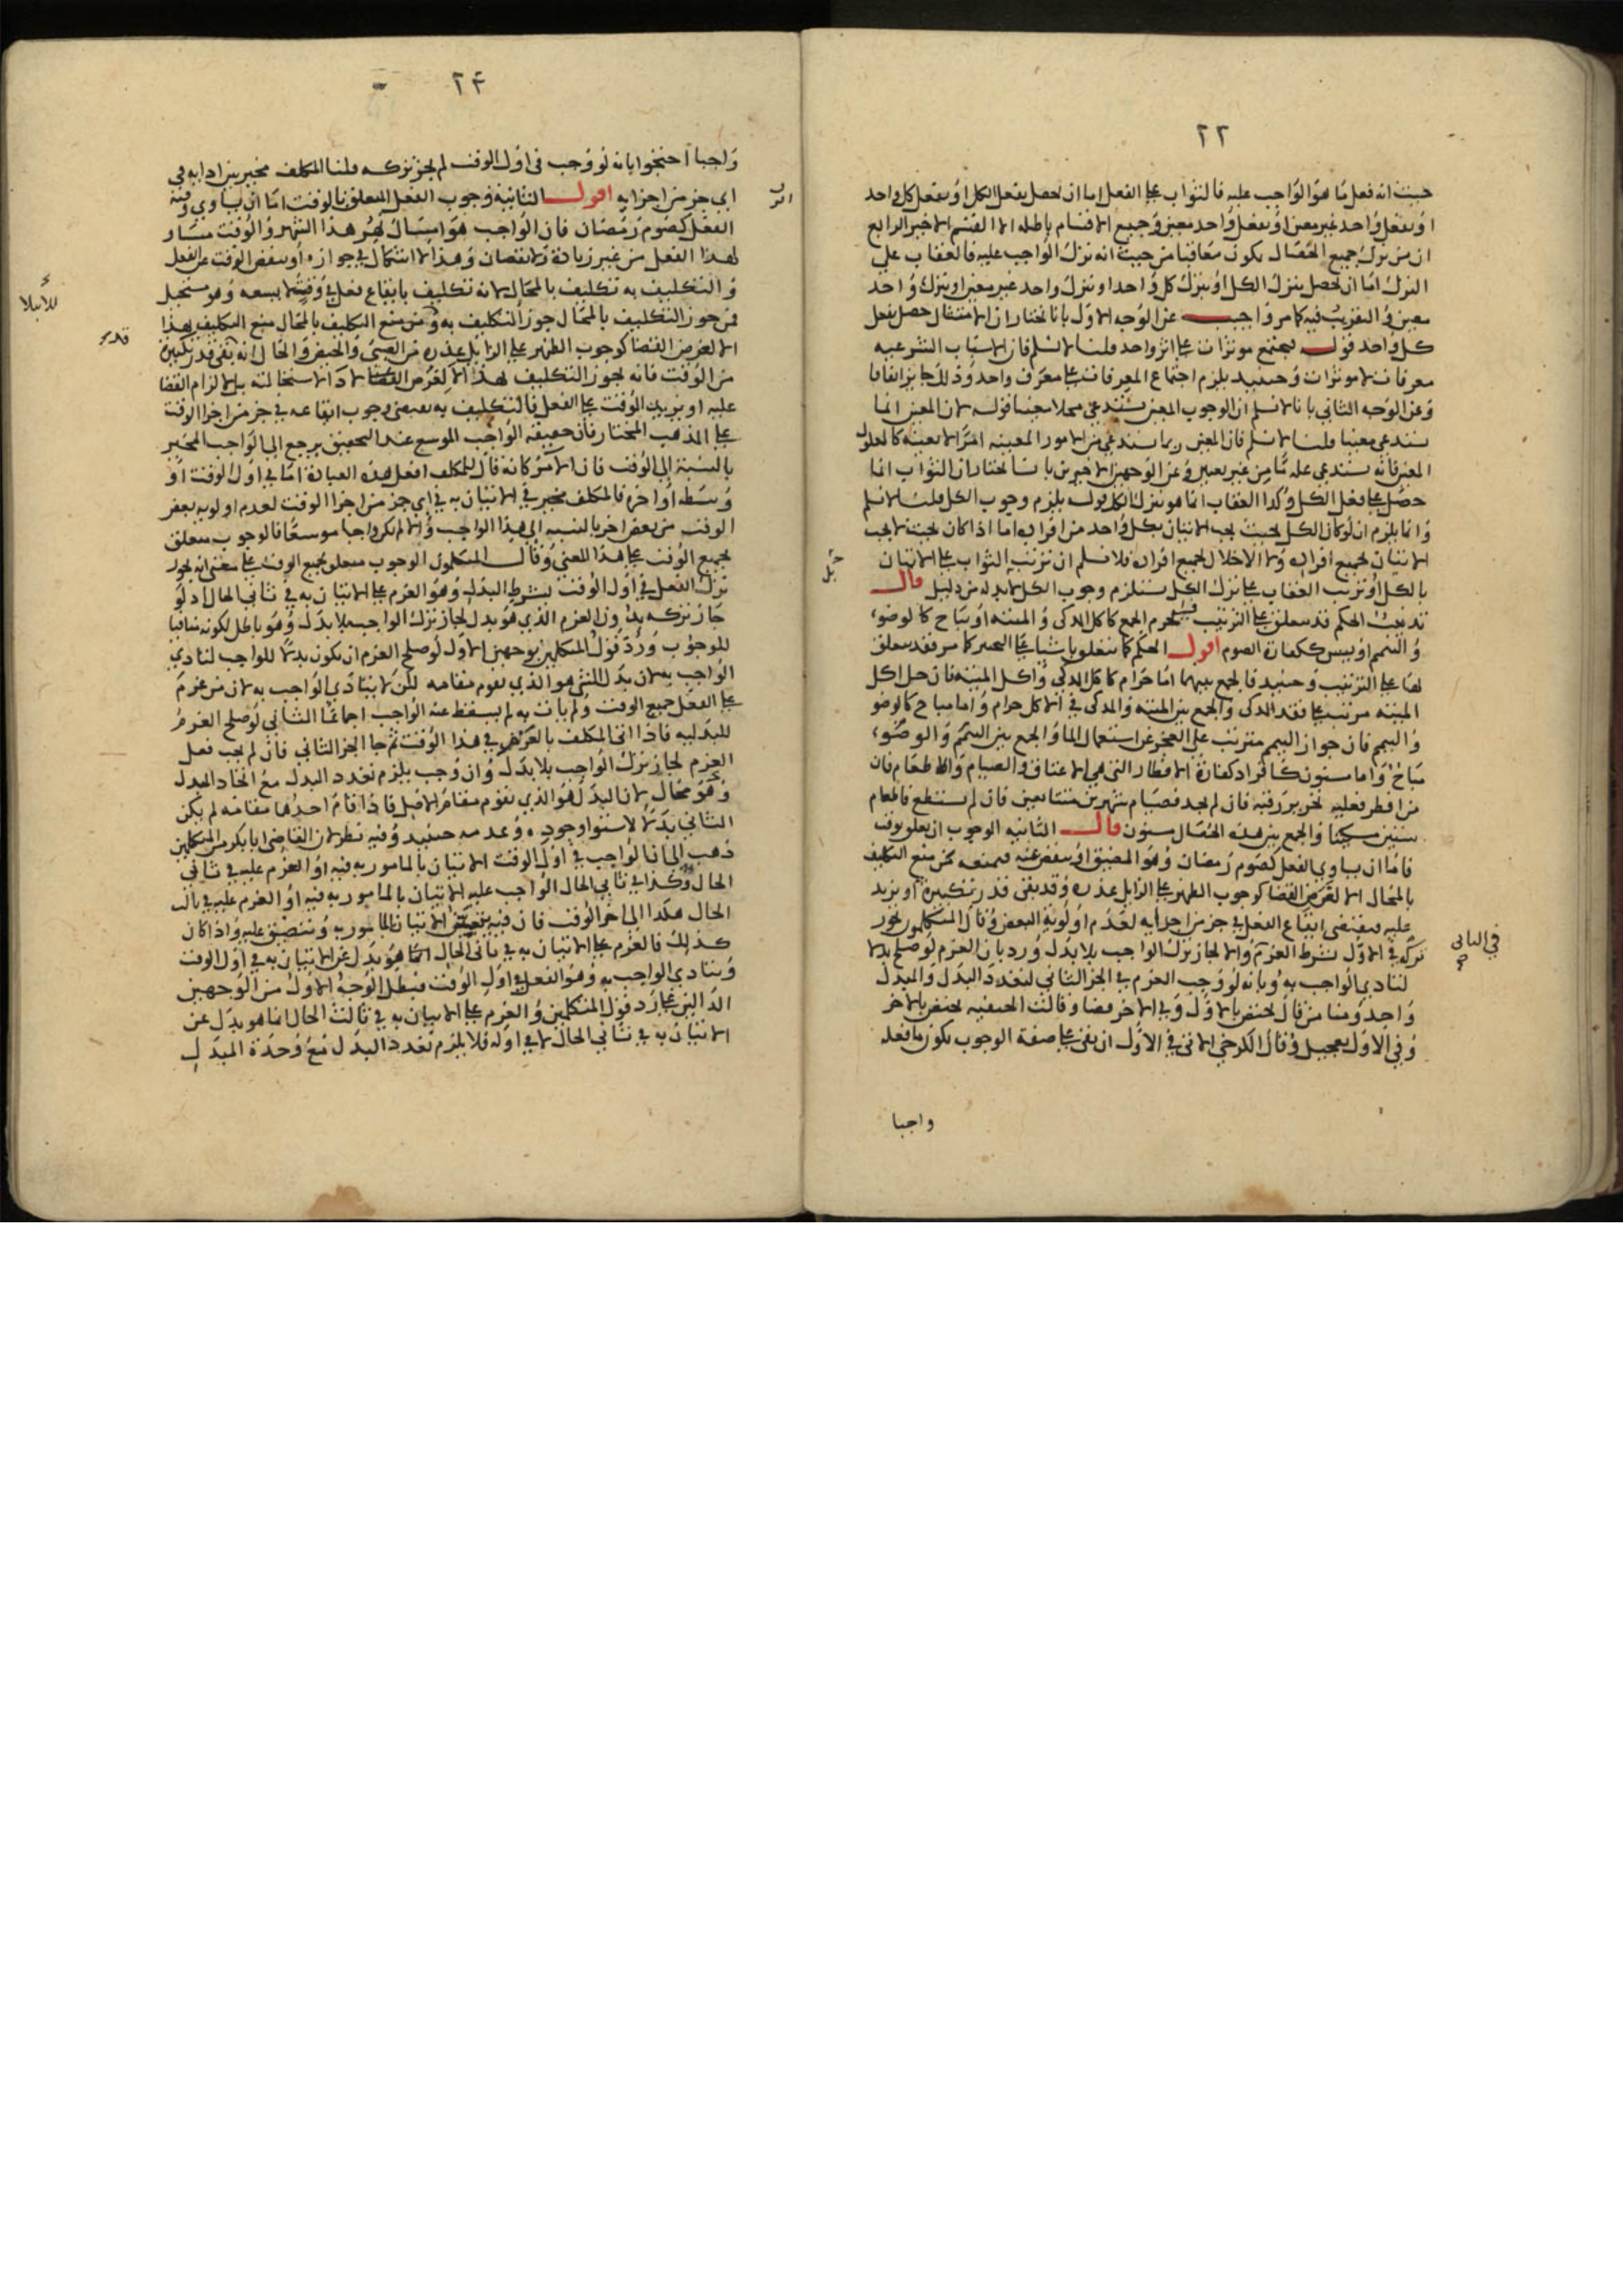 ٢٢
حيث انه فعل ما هو الواجب عليه فالثواب على الفعل اما ان يحصل بفعل الكل او بفعل كل واحد
او بفعل واحد غير معين او بفعل واحد معين وجميع الاقسام باطلة الا القسم الاخير الرابع
ان من ترك جميع الخصال يكون معاقبا من حيث انه ترك الواجب عليه فالعقاب على
الترك اما ان يحصل بترك الكل او بترك كل واحد او بترك واحد غير معين او بترك واحد
معين والتقريب فيه كما مر واجيب عن الوجه الاول بانا نختار ان الامتثال حصل بفعل
كل واحد قوله فيجتمع موثرات على اثر واحد قلنا لا نسلم فان الاسباب الشرعيه
معرفات لا موثرات وحينيد يلزم اجتماع المعرفات على معرف واحد وذلك جايز اتفاقا
وعن الوجه الثاني بانا لا نسلم ان الوجوب المعين يستدعي محلا معينا قوله لان المعين انما
يستدعي معينا قلنا لا نسلم فان المعين ربما يستدعي من الامور المعينه امرا لا بعينه كالمعلول
المعين فانه يستدعي علة ما من غير تعيين وعن الوجهين الاخيرين بانا نختار ان الثواب انما
حصل على فعل الكل وكذا العقاب انما هو بترك الكل قوله يلزم وجوب الكل قلنا لا نسلم
وانما يلزم ان لو كان الكل بحيث يجب الاتيان بكل واحد من افراده اما اذا كان بحيث لا يجب
الاتيان بجميع افراده ولا الاخلال بجميع افراده فلا نسلم ان ترتب الثواب على الاتيان
بالكل او ترتب العقاب على ترك الكل يستلزم وجوب الكل لا بد له من دليل قال
تذنيب الحكم قد يتعلق على الترتيب فيحرم الجمع كاكل المذكى والميتة او يباح كالوضوء
والتيمم او يسن ككفارة الصوم اقول الحكم كما يتعلق باشياء على التخيير كما مر فقد يتعلق
بها على الترتيب وحينيد فالجمع بينهما اما حرام كاكل المذكى واكل الميتة فان حل اكل
الميتة مرتب على فقد المذكى والجمع بين الميتة والمذكى في الاكل حرام واما مباح كالوضو
والتيمم فان جواز التيمم مترتب على العجز عن استعمال الما والجمع بين التيمم والوضوء
مباح واما مسنون كافراد كفارة الافطار التي هي الاعتاق والصيام والاطعام فان
من افطر فعليه تحرير رقبة فان لم يجد فصيام شهرين متتابعين فان لم يستطع فاطعام
ستين مسكينا والجمع بين هذه الخصال مسنون قال الثانيه الوجوب ان تعلق بوقت
فاما ان يساوي الفعل كصوم رمضان وهو المضيق او ينقص عنه فيمنعه من منع التكليف
بالمحال الا لغرض القضا كوجوب الظهر على الزايل عذره وقد بقى قدر تكبيرة او يزيد
عليه فيقتضي ايقاع الفعل في جز من اجزايه لعدم اولوية البعض وقال المتكلمون يجوز
تركه في الاول بشرط العزم والا لجاز ترك الواجب بلا بدل ورد بان العزم لو صلح بدلا
لتادي الواجب به وبانه لو وجب العزم في الجز الثاني لتعدد البدل والمبدل
واحد ومنا من قال يختص بالاول وفي الاخر قضا وقالت الحنفيه يختص بالاخر
وفي الاول تعجيل وقال الكرخي الاتي في الاول ان بقى على صفة الوجوب يكون ما فعله
واجبا
في الثاني
٢٤
واجبا احتجوا بانه لو وجب في اول الوقت لم يجز تركه قلنا المكلف مخير بين ادايه في
اي جز من اجزايه اقول الثانية وجوب الفعل المتعلق بالوقت اما ان يساوي وقته
الفعل كصوم رمضان فان الواجب هو امساك شهر هذا الشهر والوقت مساو
لهذا الفعل من غير زيادة ولا نقصان وهذا لا اشكال في جوازه او ينقص الوقت عن الفعل
والتكليف به تكليف بالمحال لانه تكليف بايقاع فعل في وقت لا يسعه وهو مستحيل
فمن جوز التكليف بالمحال جوز التكليف به ومن منع التكليف بالمحال منع التكليف بهذا
الا لغرض القضا كوجوب الظهر على الزايل عذره من الصبى والحيض والحال انه بقى قدر تكبيرة
من الوقت فانه يجوز التكليف لهذا الا لغرض القضا اذ لا استحالة بالزام القضا
عليه او يزيد الوقت على الفعل فالتكليف به يقتضي وجوب ايقاعه في جز من اجزا الوقت
على المذهب المختار فان حقيقة الواجب الموسع عند التحقيق يرجع الى الواجب المخير
بالنسبة الى الوقت فان الامر كانه قال للمكلف افعل هذه العبادة اما في اول الوقت او
وسطه او اخره فالمكلف مخير في الاتيان به في اي جز من اجزا الوقت لعدم اولويه بعض
الوقت من بعض اخر بالنسبه الى هذا الواجب والا لم يكن واجبا موسعا فالوجوب متعلق
بجميع الوقت على هذا المعنى وقال المتكلمون الوجوب متعلق بجميع الوقت على معنى انه يجوز
ترك الفعل في اول الوقت بشرط البدل وهو العزم على الاتيان به في ثاني الحال اذ لو
جاز تركه بدون العزم الذي هو بدل لجاز ترك الواجب بلا بدل وهو باطل لكونه منافيا
للوجوب ورد قول المتكلمين بوجهين الاول لو صلح العزم ان يكون بدلا للواجب لتادي
الواجب به لان بدل الشي هو الذي يقوم مقامه لكن لا يتادي الواجب به لان من عزم
على الفعل جميع الوقت ولم يات به لم يسقط عنه الواجب اجماعا الثاني لو صلح العزم
للبدليه فاذا اتى المكلف بالعزم في هذا الوقت ثم جا الجز الثاني فان لم يجب فعل
العزم لجاز ترك الواجب بلا بدل وان وجب يلزم تعدد البدل مع اتحاد المبدل
وهو محال لان البدل هو الذي يقوم مقام الاصل فاذا قام احدها مقامه لم يكن
الثاني بدلا لاستوا وجوده وعدمه حينيد وفيه نظر لان القاضي ابا بكر من المتكلمين
ذهب الى ان الواجب في اول الوقت الاتيان بالمامور به فيه او العزم عليه في ثاني
الحال وكذا في ثاني الحال الواجب عليه الاتيان بالمامور به فيه او العزم عليه في ثالث
الحال هكذا الى اخر الوقت فان فيه يتعين الاتيان بالمامور به ويتضيق عليه واذا كان
كذلك فالعزم على الاتيان به في ثاني الحال انما هو بدل عن الاتيان به في اول الوقت
ويتادي الواجب به وهو الفعل في اول الوقت فبطل الوجه الاول من الوجهين
الدالين على رد قول المتكلمين والعزم على الاتيان به في ثالث الحال انما هو بدل عن
الاتيان به في ثاني الحال لا في اوله فلا يلزم تعدد البدل مع وحدة المبدل